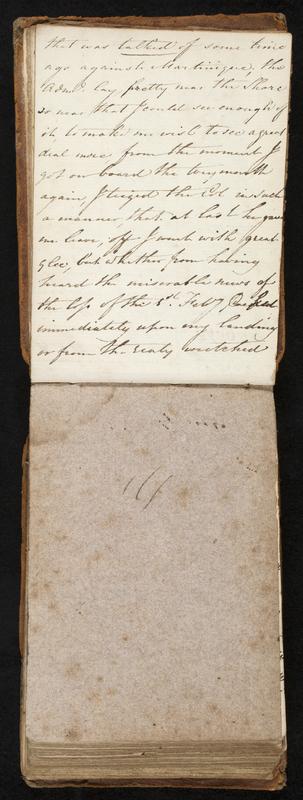 that was talked of some time
ago against Martinique, the
Adml. lay, pretty near the Shore
so near that I could see enough of
it to make me wish to see a great
deal more, from the moment I
got on board the
again I teized the Col in such
a manner, that at last he gave
me leave, off I went with great
glee, but whether from having
heard the miserable news of
the loss of the 5t. Feby
immediately upon my landing
or from the realy wretched